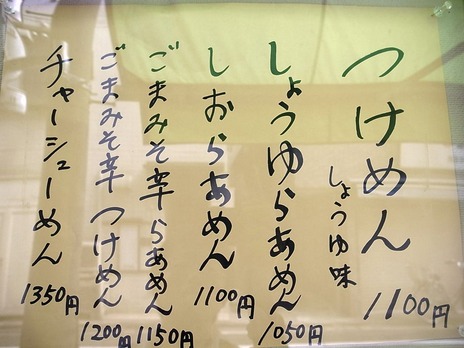 つけめん
しょうゆ味
1100円
しょうゆらあめん
1050円
しおらあめん
1100円
ごまみそ辛らあめん
1150円
ごまみそ辛 つけめん
1200円
チャーシューめん
1350円